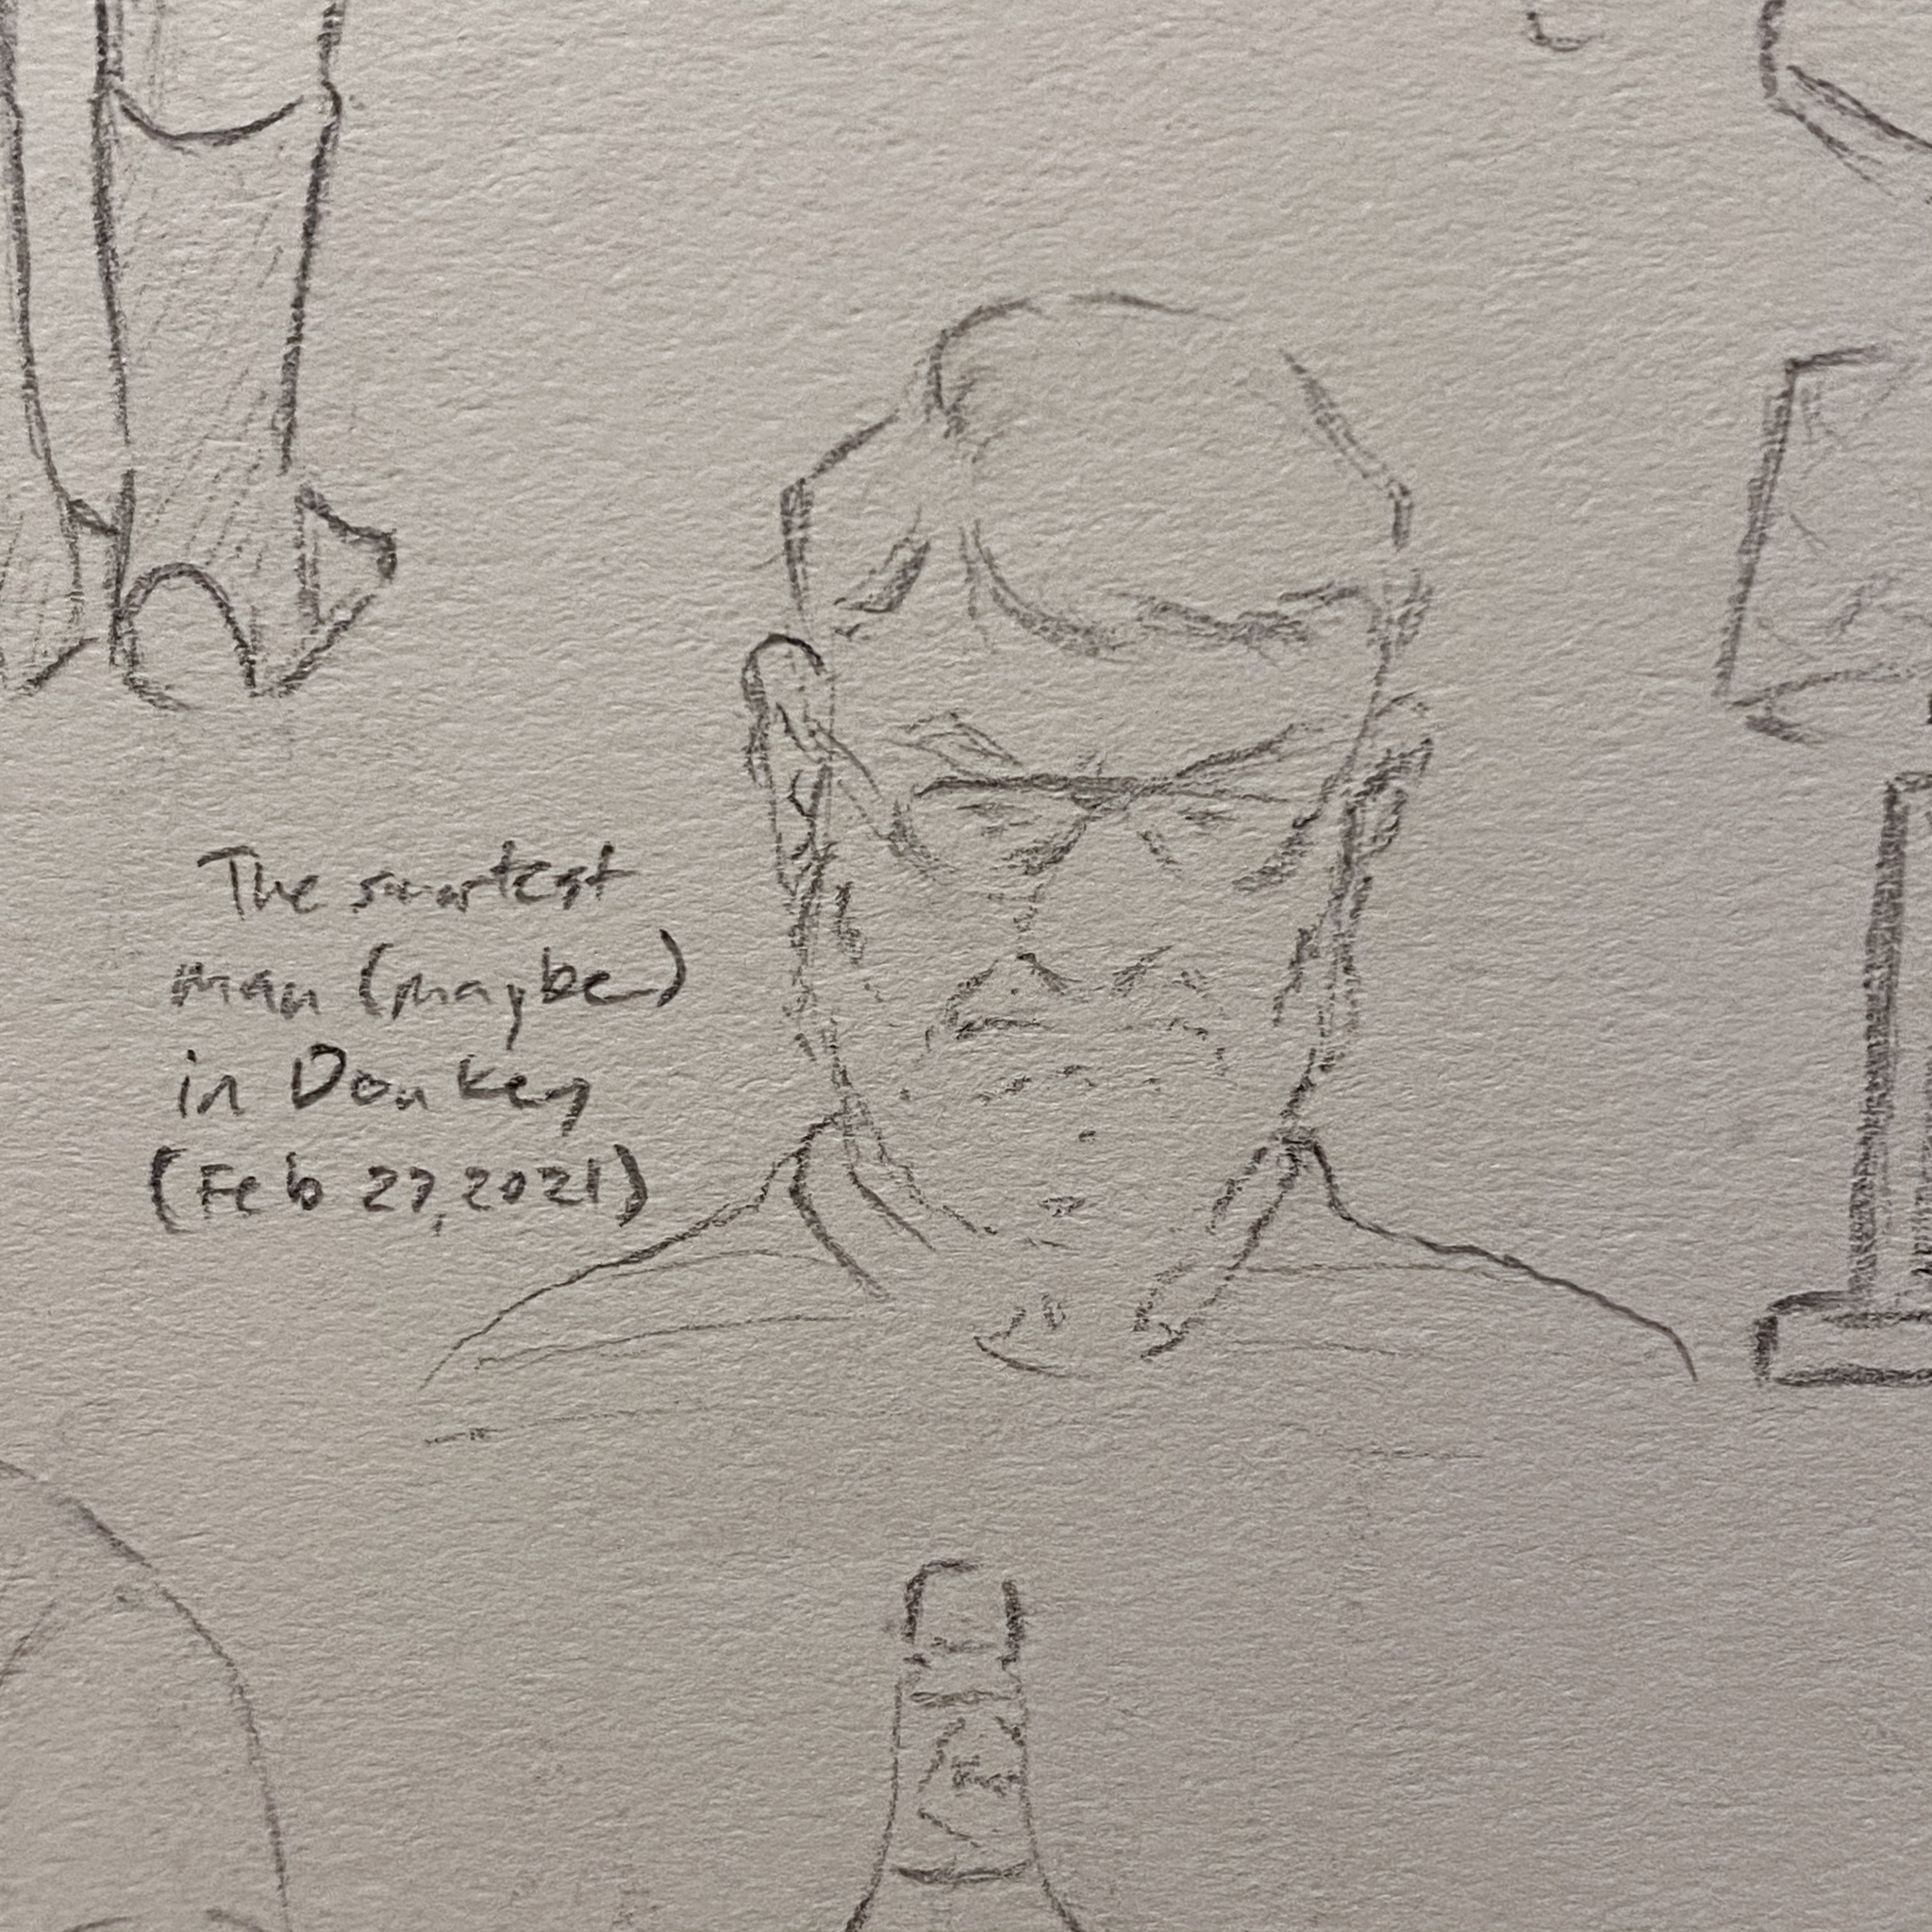 The smartest
man (maybe)
in Donkey
(Feb 27, 2021)